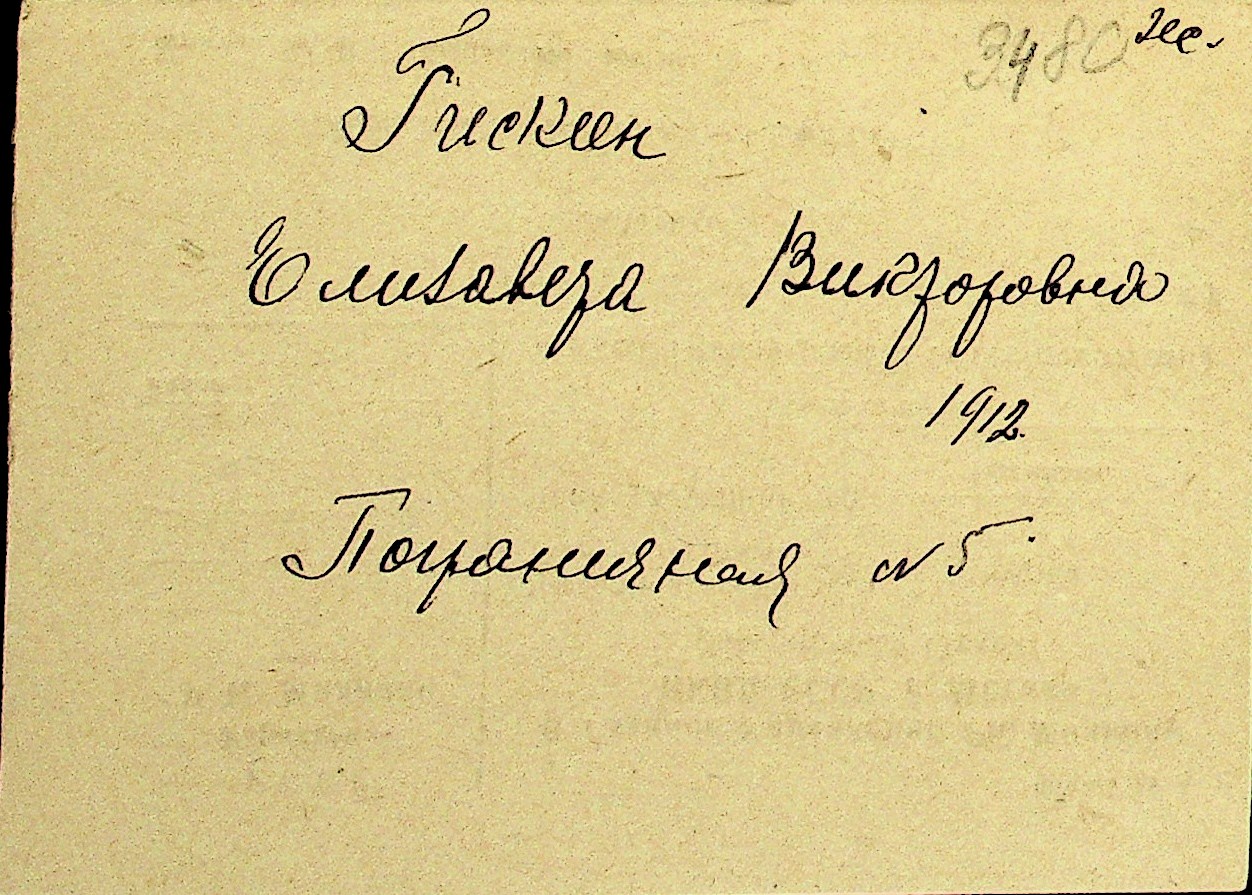 3480
Гискин
Елизавета Викторовна
1912.
Пограничная № 5